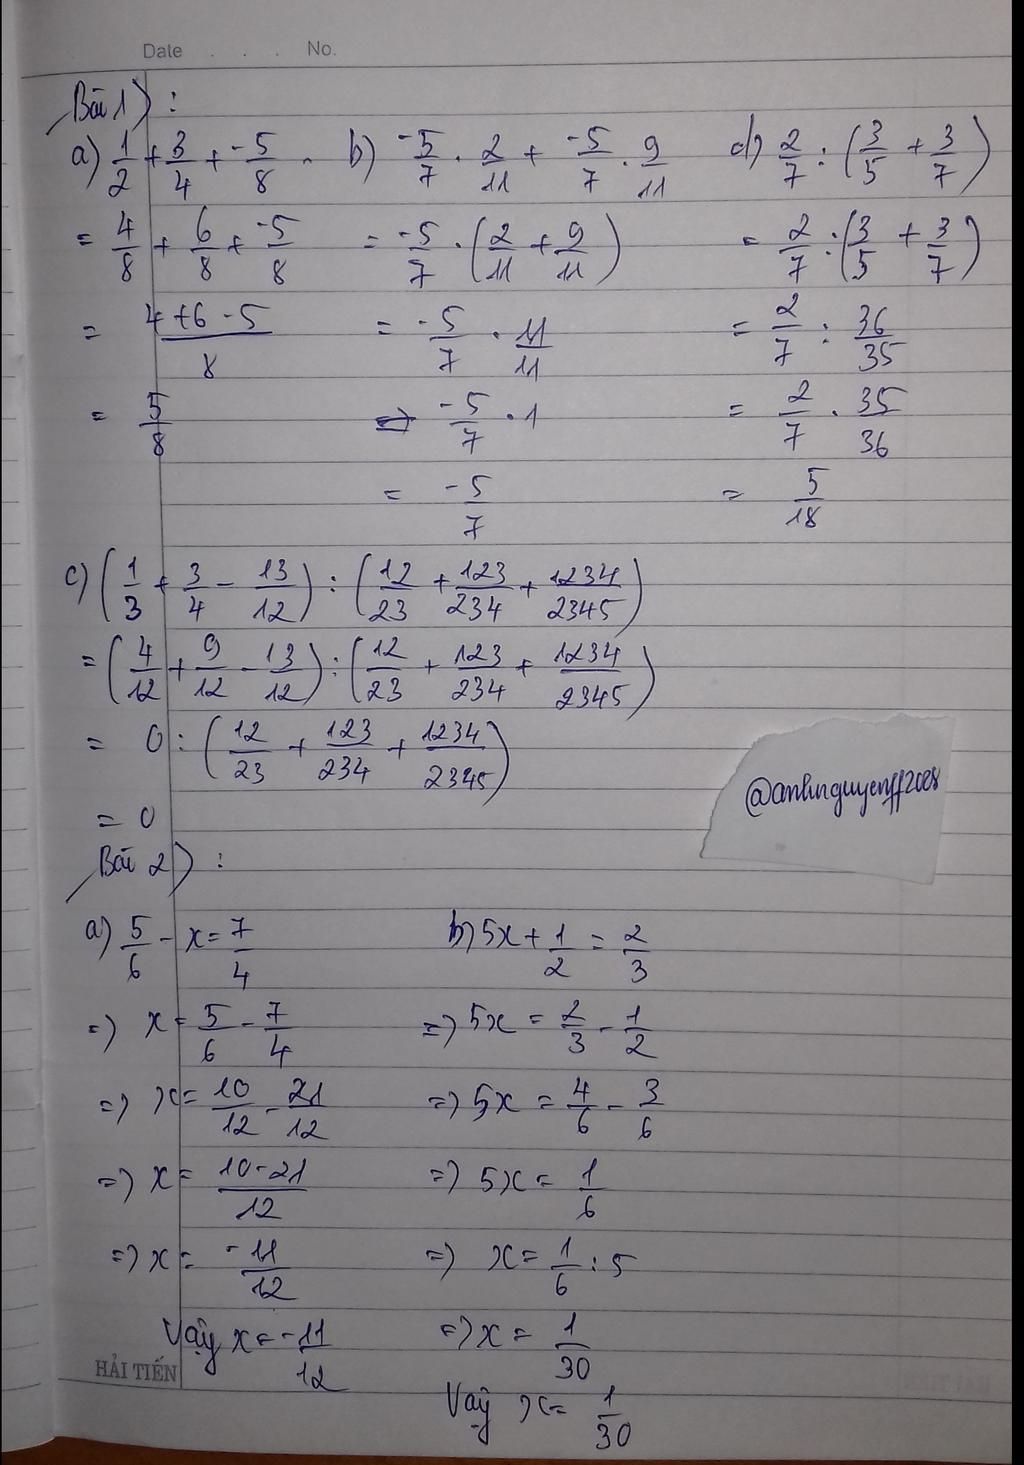 Date . . . No.
Bài 1) :
a) 1/2 + 3/4 + -5/8 .
= 4/8 + 6/8 + -5/8
= (4+6-5)/8
= 5/8
b) -5/7 . 2/11 + -5/7 . 9/11
= -5/7 . (2/11 + 9/11)
= -5/7 . 11/11
= -5/7 . 1
= -5/7
d) 2/7 : (3/5 + 3/7)
= 2/7 : (3/5 + 3/7)
= 2/7 : 36/35
= 2/7 . 35/36
= 5/18
c) (1/3 + 3/4 - 13/12) : (12/23 + 123/234 + 1234/2345)
= (4/12 + 9/12 - 13/12) : (12/23 + 123/234 + 1234/2345)
= 0 : (12/23 + 123/234 + 1234/2345)
= 0
@anhnguyenff2008
Bài 2) :
a) 5/6 - x = 7/4
=) x = 5/6 - 7/4
=) x = 10/12 - 21/12
=) x = (10-21)/12
=) x = -11/12
Vậy x = -11/12
b) 5x + 1/2 = 2/3
=) 5x = 2/3 - 1/2
=) 5x = 4/6 - 3/6
=) 5x = 1/6
=) x = 1/6 : 5
=) x = 1/30
Vậy x = 1/30
HẢI TIẾN